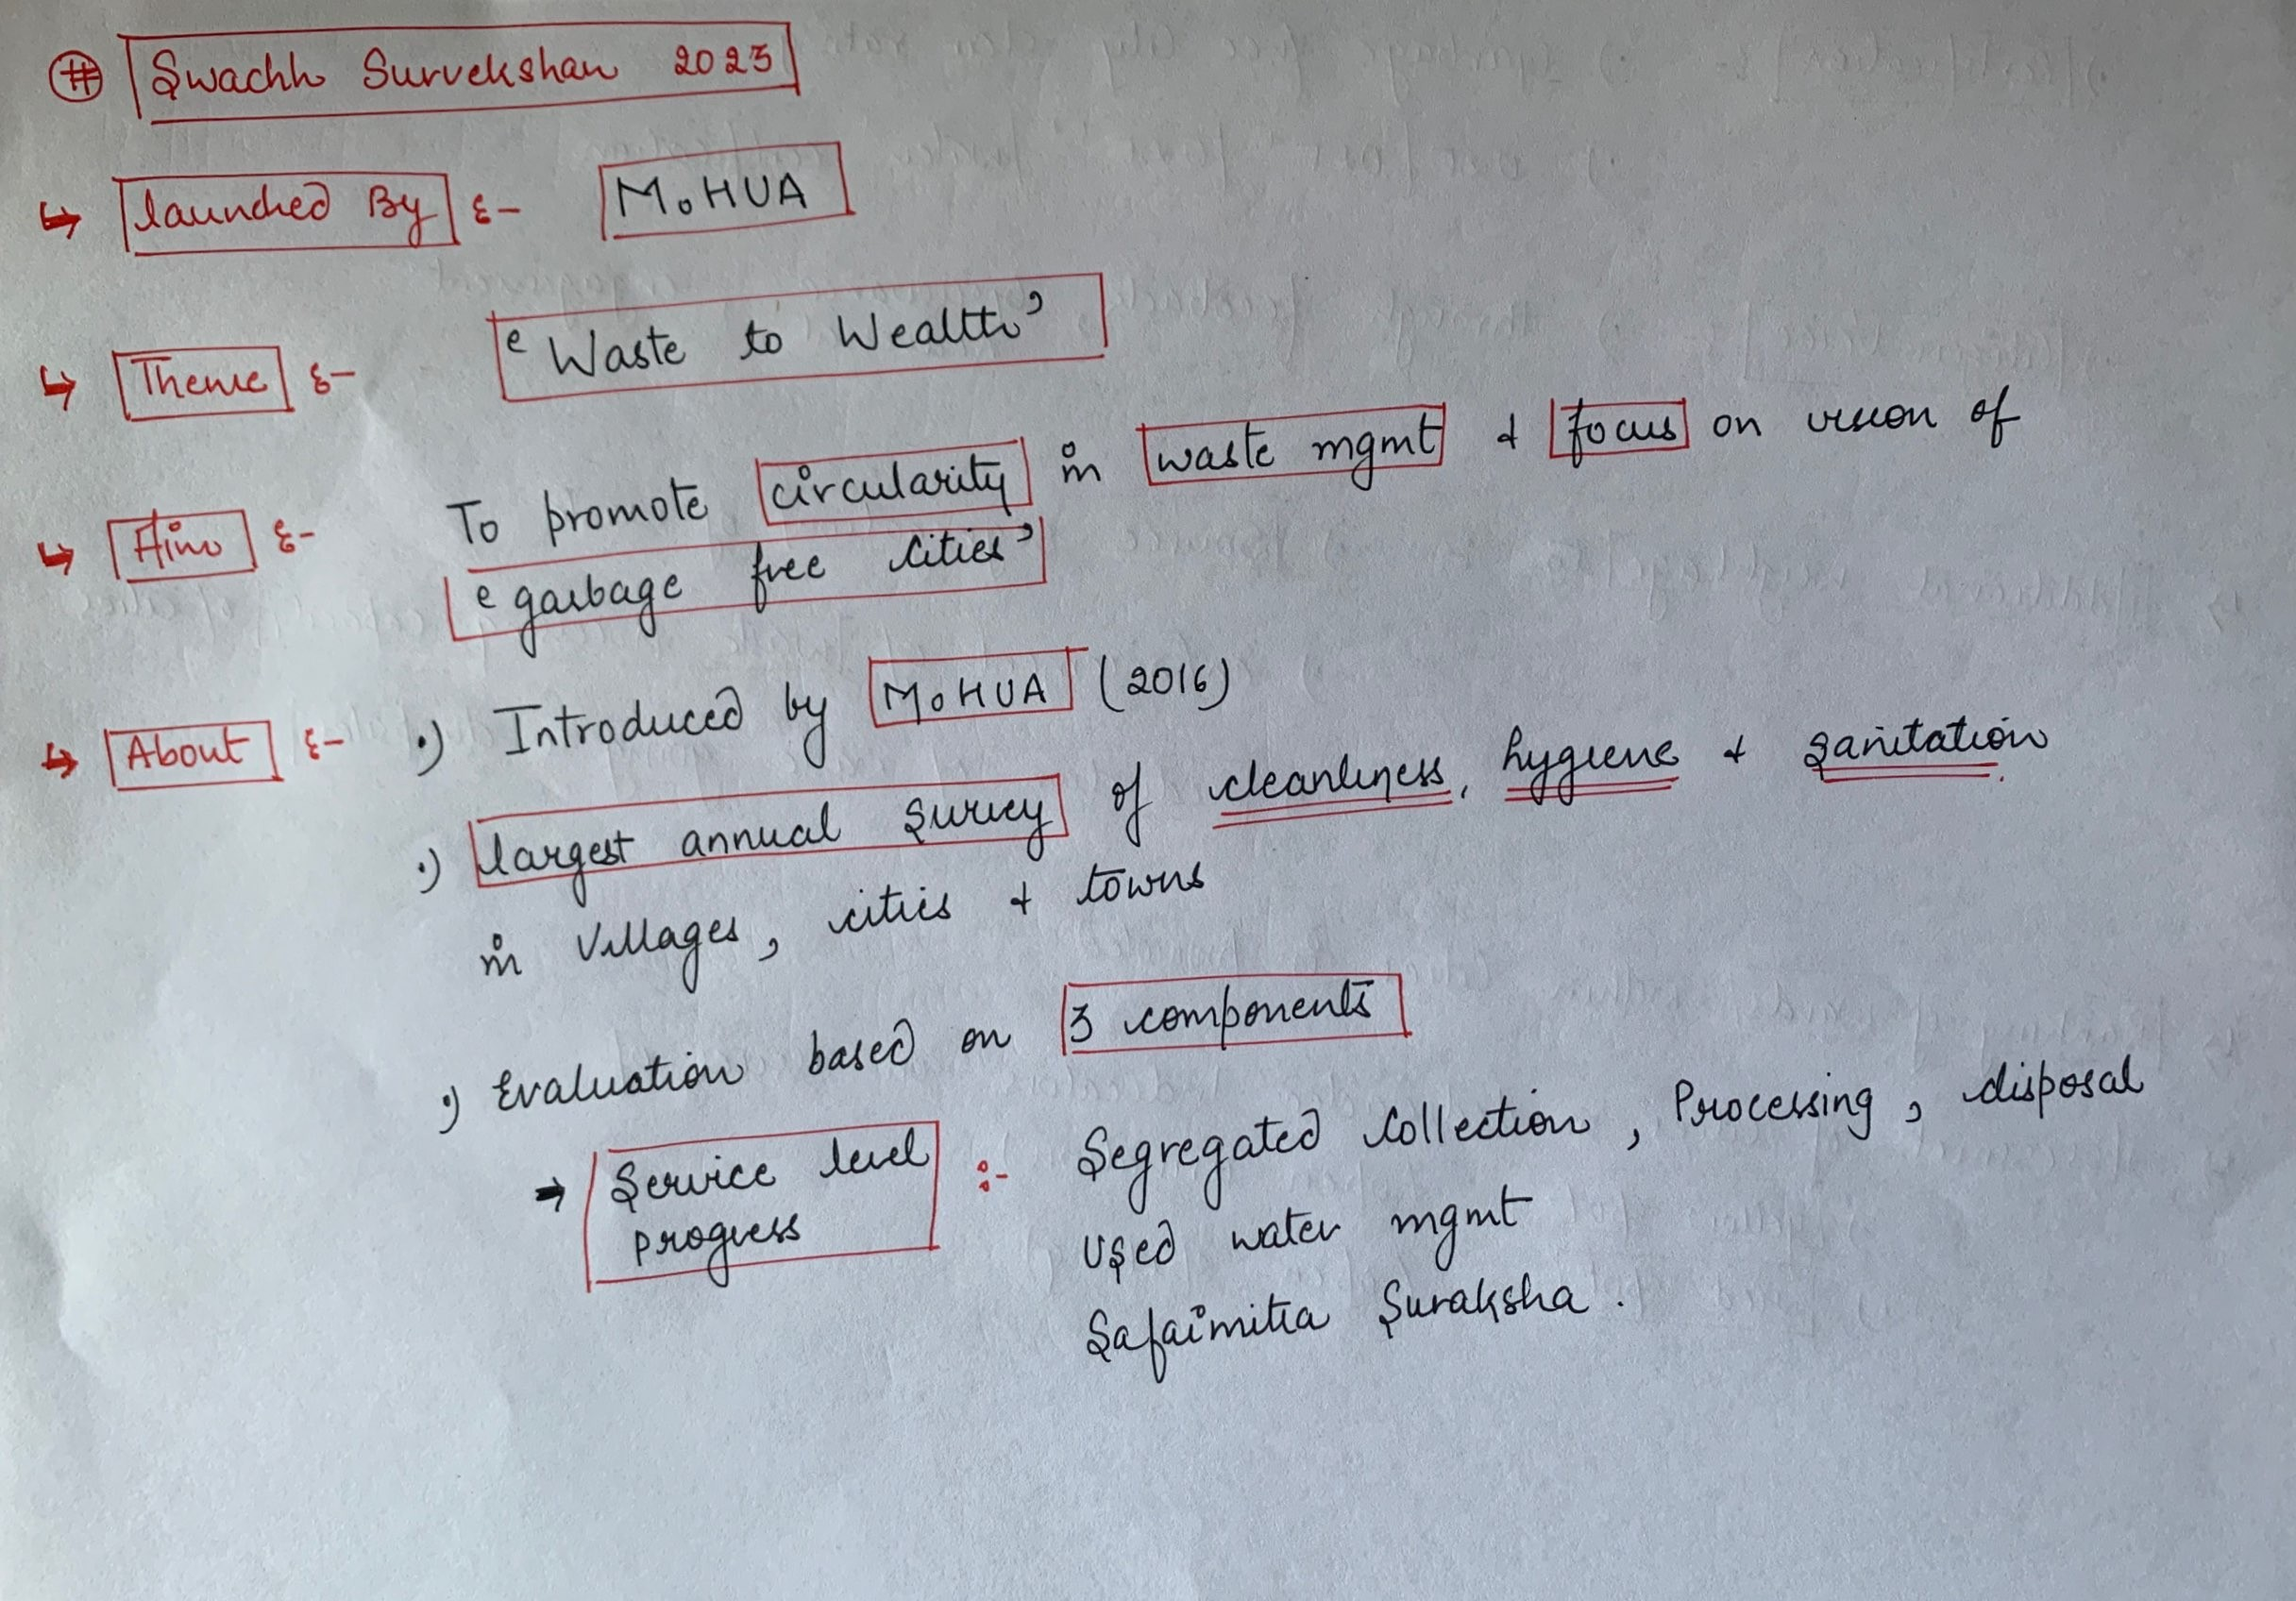 # Swachh Survekshan 2023
↳ launched By :- MoHUA
↳ Theme :- 'Waste to Wealth'
↳ Aim :- To promote circularity in waste mgmt + focus on vision of
'garbage free cities'
↳ About :- •) Introduced by MoHUA (2016)
•) largest annual survey of cleanliness, hygiene + sanitation.
in villages, cities + towns
•) Evaluation based on 3 components
→ Service level progress :- Segregated Collection, Processing, disposal
Used water mgmt
Safaimitra Suraksha.